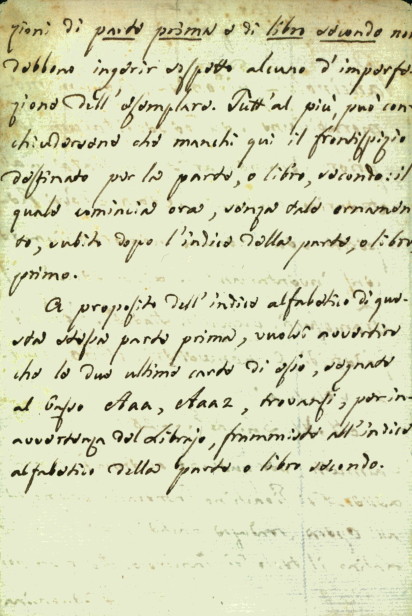 zioni di parte prima e di libro secondo non
debbono ingerir sospetto alcuno d'imperfe-
zione dell'esemplare. Tutt'al più, può con-
chiudersene che manchi qui il frontispizio
destinato per la parte, o libro, secondo: il
quale comincia ora, senza tale ornamen-
to, subito dopo l'indice della parte, o libro,
primo.
A proposito dell'indice alfabetico di que-
sta stessa parte prima, vuolsi avvertire
che le due ultime carte di esso, segnate
al basso Aaa, Aaa2, trovansi, per in-
avvertenza del librajo, frammiste all'indice
alfabetico della parte o libro secondo.